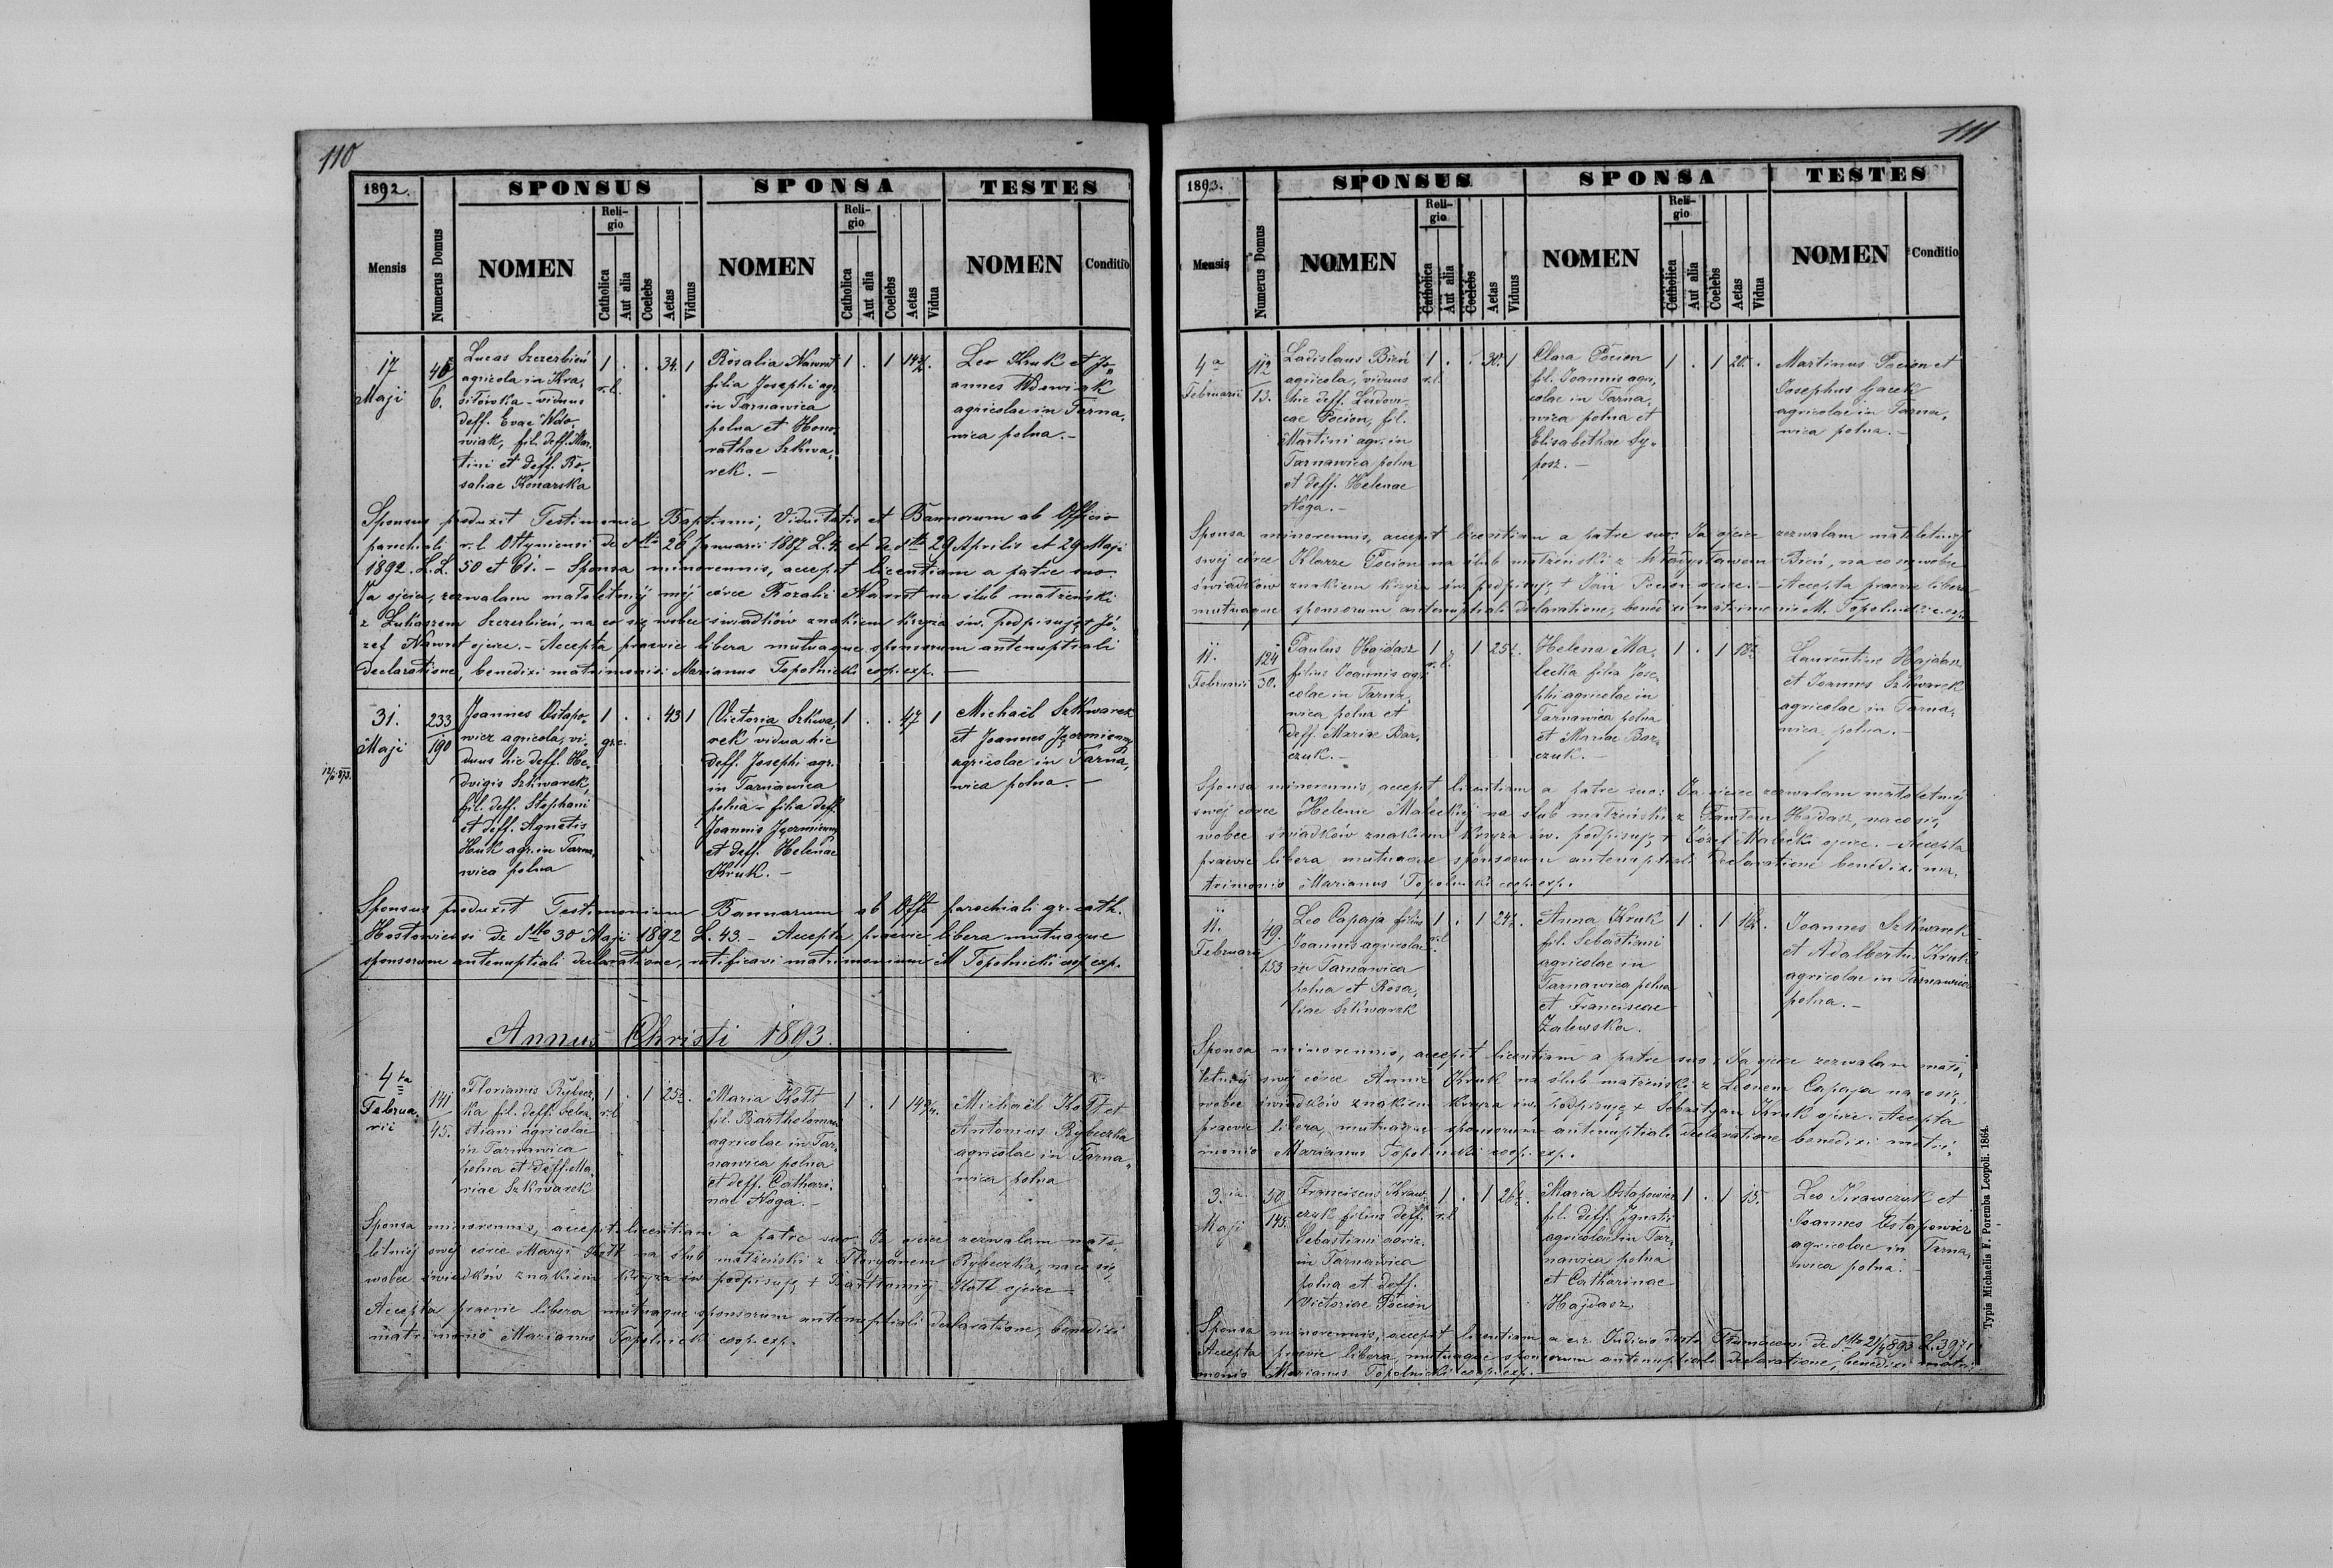 110
1892.
SPONSUS SPONSA TESTES
Mensis Numerus Domus NOMEN Religio Catholica Aut alia Coelebs Aetas Viduus NOMEN Religio Catholica Aut alia Coelebs Aetas Vidua NOMEN Conditio
17
Maji
6.
Lucas Szczerbień
agricola in Kra,
siłówka - viduus
deff. Evae Wdo,
wiak, fil. deff. Mar,
tini et deff. Ro,
saliae Konarska
1 . . 34. 1
r.l.
Rosalia Nawrot
filia Josephi agr.
in Tarnawica
polna et Hono,
rathae Szkwa,
rek. -
1 . 1
Leo Kruk et Jo,
annes Wdowiak
agricolae in Tarna,
wica polna. -
Sponsus produxit Testimonia Baptismi, Viduitatis et Bannorum ab Officio
parochiali r.l. Ottyniensi de dtto 26 Januarii 1887 L.4. et de dtto 29 Aprilis et 29 Maji
1892. L.L. 50 et 61. - Sponsa minorennis, accepit licentiam a patre suo.
Ja ojciec, zezwalam małoletniéj méj córce Rozalii Nawrot na ślub małżeński
z Łukaszem Szczerbień, na co się wobec świadków znakiem krzyża św. podpisuję + Jó,
zef Nawrot ojciec. - Accepta praevie libera mutuaque sponsorum antenuptiali
declaratione, benedixi matrimonio: Marianus Topolnicki coop. exp.
31.
Maji
233
190
Joannes Ostapo,
wicz agricola, vi,
duus hic deff. He,
dvigis Szkwarek,
fil. deff. Stephani
et deff. Agnetis
Huk agr. in Tarna,
wica polna
1 . . 43 1
grc.
Victoria Szkwa,
rek vidua hic
deff. Josephi agr.
in Tarnawica
polna - filia deff.
Joannis
et deff. Helenae
Kruk. -
1 . . 47 1
Michaël Szkwarek
et Joannes
agricolae in Tarna,
wica polna. -
Sponsus produxit Testimonium Bannorum ab Offo parochiali gr. cath.
Hostowiensi de dtto 30 Maji 1892 L. 43. - Accepta praevie libera mutuaque
sponsorum antenuptiali declaratione, ratificavi matrimonium M Topolnicki coop. exp.
Annus Christi 1893.
4ta
Februa,
rii
141
45.
Florianus Rybecz,
ka fil. deff. Seba,
stiani agricolae
in Tarnawica
polna et deff. Ma,
riae Szkwarek
1 . 1
r.l
Maria Kott
fil. Bartholomaei
agricolae in Tar,
nawica polna
et deff. Cathari,
nae Noga. -
1 . 1
Michaël Kott et
Antonius Rybeczka
agricolae in Tarna,
wica polna
Sponsa minorennis, accepit licentiam a patre suo: Ja ojciec zezwalam mało,
letniéj swéj córce Maryi Kott na ślub małżeński z Floryanem Rybeczka, na co się,
wobec świadków znakiem krzyża św. podpisuję + Bartłomiéj Kott ojciec.
Accepta praevie libera mutuaque sponsorum antenuptiali declaratione, benedixi
matrimonio Marianus Topolnicki coop. exp.
111
1893.
SPONSUS SPONSA TESTES
Mensis Numerus Domus NOMEN Religio Catholica Aut alia Coelebs Aetas Viduus NOMEN Religio Catholica Aut alia Coelebs Aetas Vidua NOMEN Conditio
4a
Februarii
112
13.
Ladislaus Bień
agricola, viduus
hic deff. Ludovi,
cae Pocion, fil.
Martini agr. in
Tarnawica polna
et deff. Helenae
Noga. -
1 . . 30. 1
r.l.
Clara Pocion
fil. Joannis agri,
colae in Tarna,
wica polna et
Elisabethae Sy,
posz. -
1 . 1 20. .
Martinus Pocion et
Josephus Gacek
agricolae in Tarna,
wica polna. -
Sponsa minorennis, accepit licentiam a patre suo: Ja ojciec zezwalam małoletniéj
swéj córce Klarze Pocion na ślub małżeński z Władysławem Bień, na co się wobec
świadków znakiem krzyża św. podpisuję + Jan Pocion ojciec. - Accepta praevie libera
mutuaque sponsorum antenuptiali declaratione, benedixi matrimonio M. Topolnicki c. exp.
11.
Februarii
124
30.
Paulus Hajdasz
filius Joannis agri
colae in Tarna,
wica polna et
deff. Mariae Bar,
czuk. -
1 . 1
r.l.
Helena Ma,
lecka filia Jose,
phi agricolae in
Tarnawica polna
et Mariae Bar,
czuk. -
1 . 1
Laurentius Hajdasz
et Joannes Szkwarek
agricolae in Tarna,
wica polna. -
Sponsa minorennis, accepit licentiam a patre suo: Ja ojciec zezwalam małoletniéj
swéj córce Helenie Maleckiéj na ślub małżeński z Pawłem Hajdasz, na co się,
wobec świadków znakiem krzyża św. podpisuję + Józef Malecki ojciec. - Accepta
praevie libera mutuaque sponsorum antenuptiali declaratione benedixi ma,
trimonio Marianus Topolnicki coop. exp.
11.
Februarii
49.
153
Leo Capaja filius
Joannis agricolae
in Tarnawica
polna et Rosa,
liae Szkwarek
1 . 1
r.l.
Anna Kruk
fil. Sebastiani
agricolae in
Tarnawica polna
et Franciscae
Zalewska.
1 . 1
Joannes Szkwarek
et Adalbertus Kruk
agricolae in Tarnawica
polna. -
Sponsa minorennis, accepit licentiam a patre suo: Ja ojciec zezwalam mało,
letniéj swéj córce Annie Kruk na ślub małżeński z Leonem Capaja na co się,
wobec świadków znakiem krzyża św. podpisuję + Sebastyan Kruk ojciec. Accepta
praevie libera, mutuaque sponsorum antenuptiali declaratione benedixi matri,
monio Marianus Topolnicki coop. exp.
3. ia
Maji
50.
145.
Franciscus Kraw,
czuk filius deff.
Sebastiani agric.
in Tarnawica
polna et deff.
Victoriae Pocion
1 . 1
r.l
Maria Ostapowicz
fil. deff. Ignatii
agricolae in Tar,
nawica polna
et Catharinae
Hajdasz.
1 . 1 15.
Leo Krawczuk et
Joannes Ostapowicz
agricolae in Tarna,
wica polna. -
Sponsa minorennis, accepit licentiam a c.r. Judicio Distr. Tłumacensi de dtto 21/4 893 L.
Accepta praevie libera, mutuaque sponsorum antenuptiali declaratione, benedixi matri,
monio Marianus Topolnicki coop. exp.
Typis Michaelis F. Poremba Leopoli. 1864.